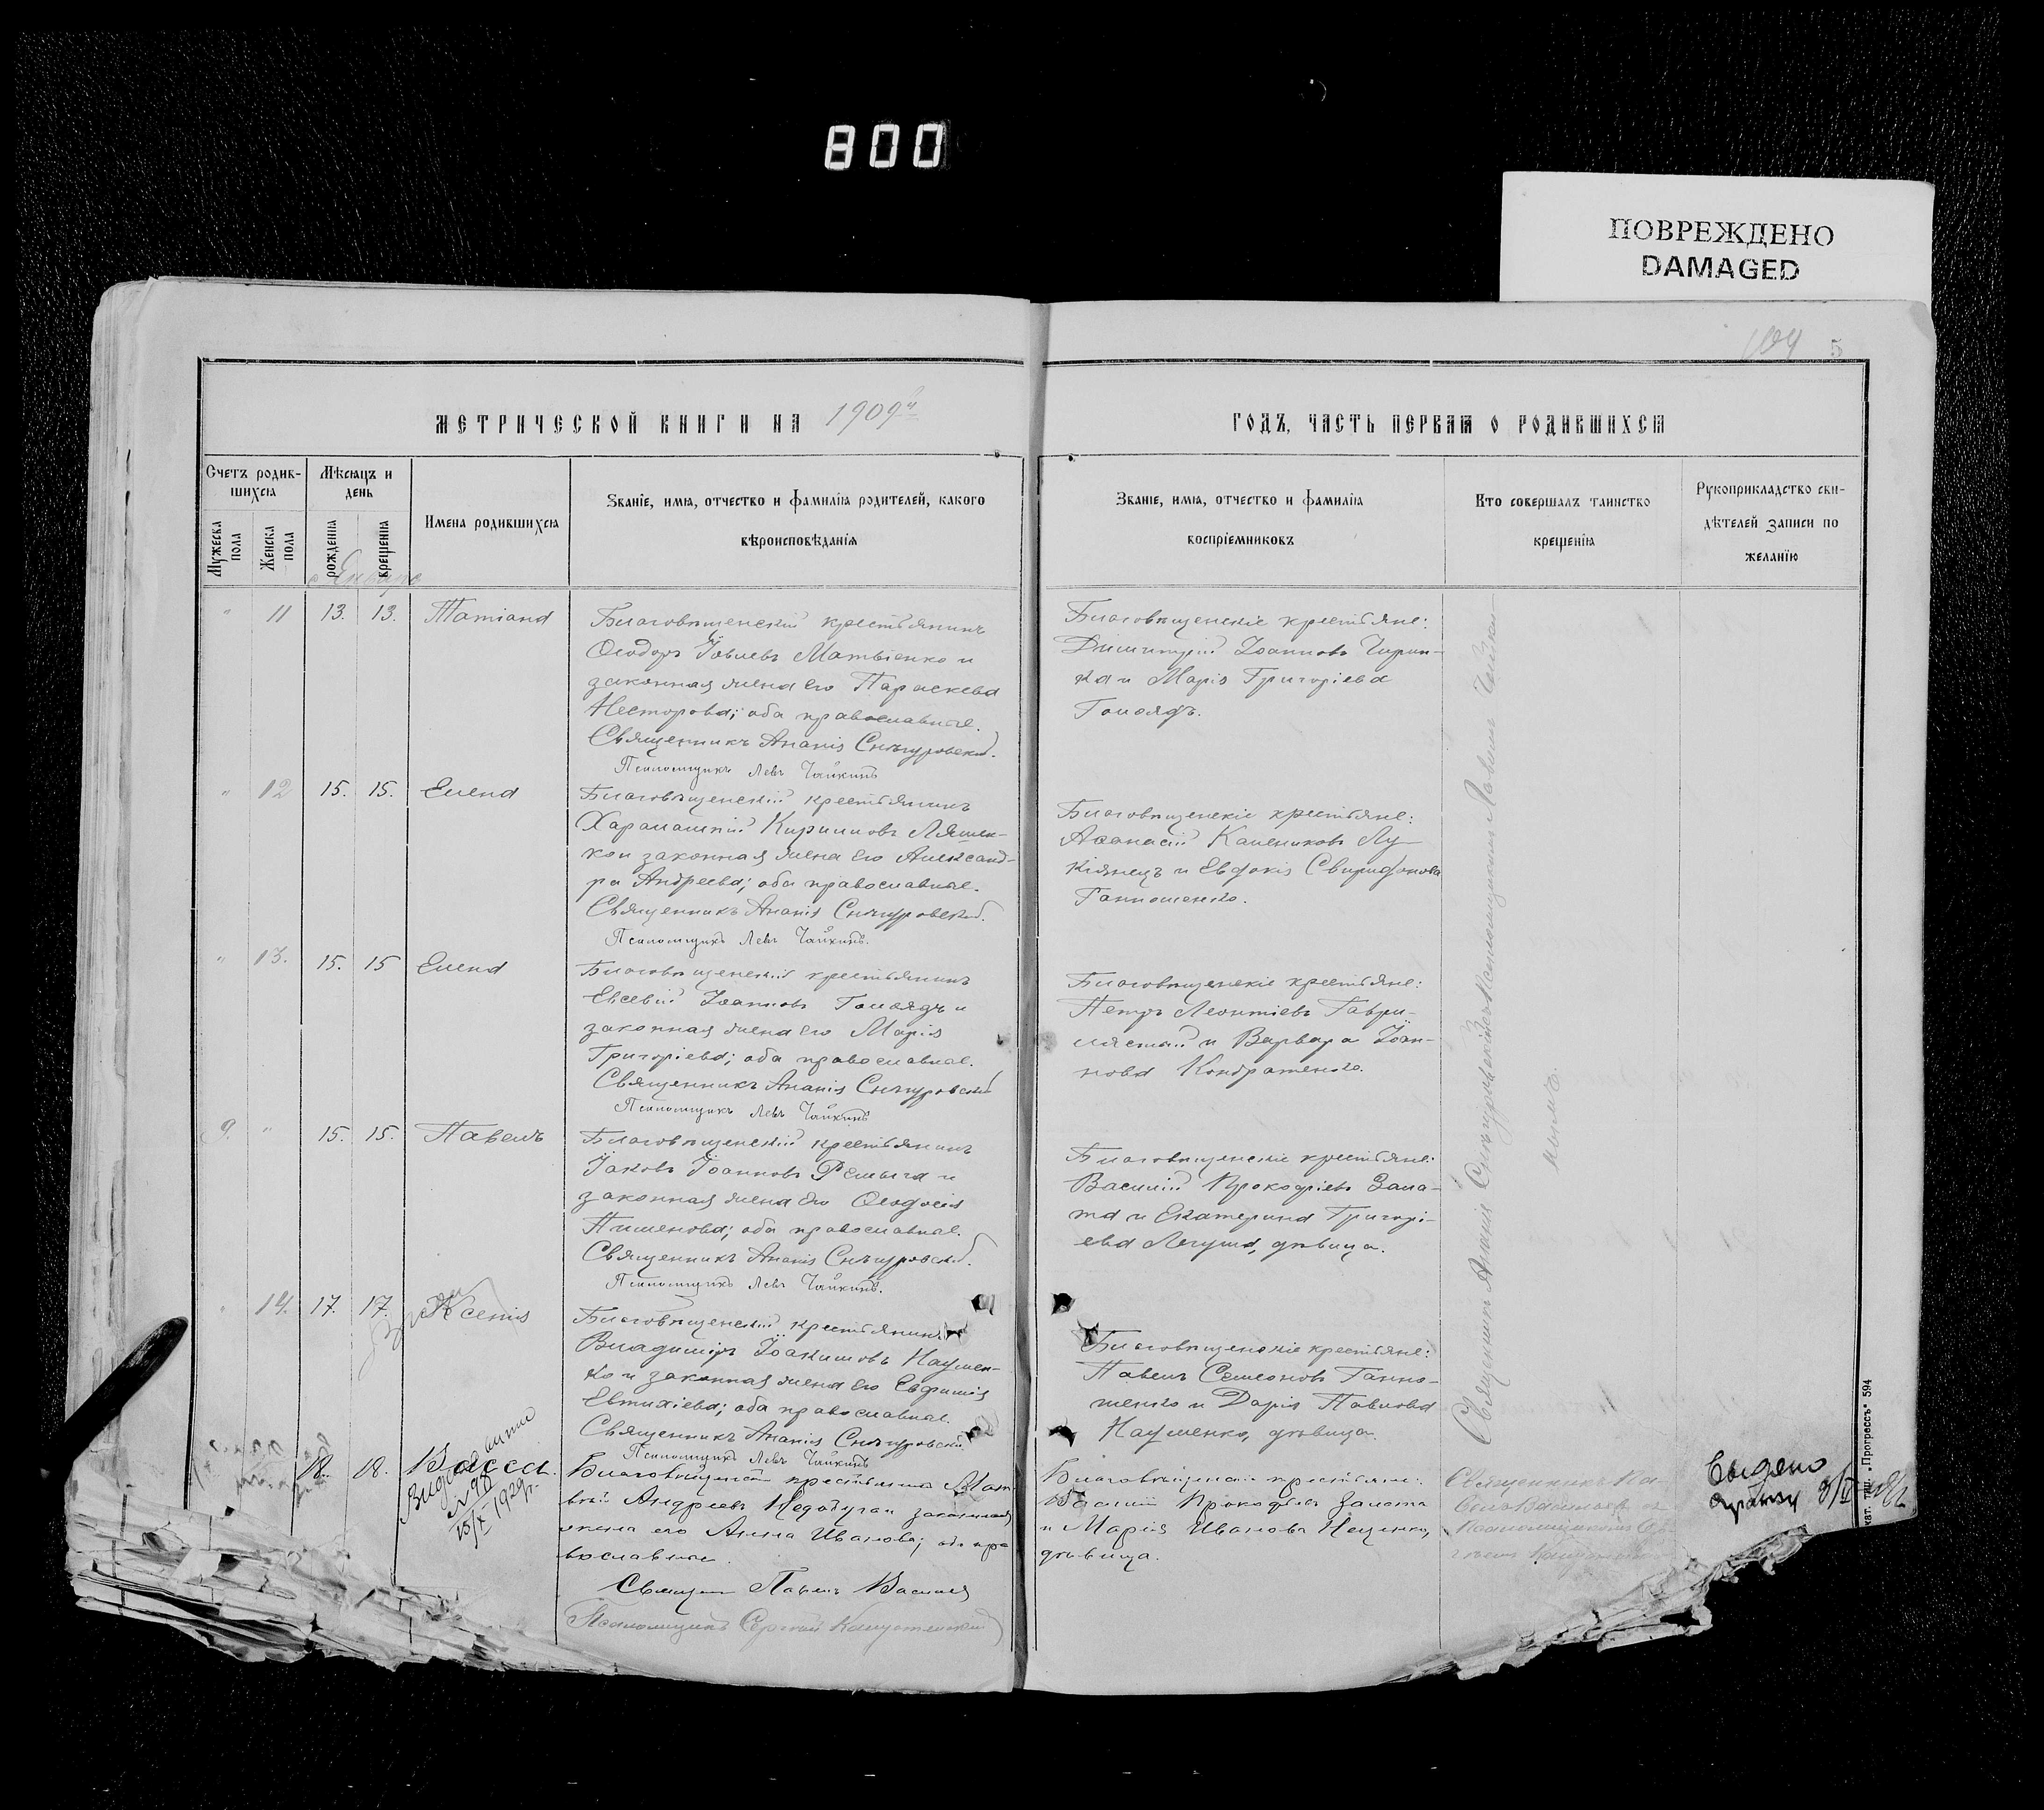 800
ПОВРЕЖДЕНО
DAMAGED
5
МЕТРИЧЕСКОЙ КНИГИ НА 1909й
ГОДЪ, ЧАСТЬ ПЕРВАЯ О РОДИВШИХСЯ
Счетъ родившихся
Мужеска пола
Женска пола
Мѣсяцъ и день
рожденія
крещенія
Имена родившихся
Званіе, имя, отчество и фамилія родителей, какого
вѣроисповѣданія
Званіе, имя, отчество и фамилія
воспріемниковъ
Кто совершалъ таинство
крещенія
Рукоприкладство сви-
дѣтелей записи по
желанію
Январь
" 11 13. 13. Татіана
Благовѣщенскій крестьянинъ
Ѳеодоръ Іовлевъ Матвіенко и
законная жена его Параскева
Несторова; оба православные.
Священникъ Ананія Снѣгуровскій.
Псаломщикъ Левъ Чайкинъ
Благовѣщенскіе крестьяне:
Димитрій Іоанновъ
ка и Марія Григоріева
Голоядъ.
" 12 15. 15. Елена
Благовѣщенскій крестьянинъ
Харалампій Кирилловъ Ляшен-
ко и законная жена его Александ-
ра Андреева; оба православные.
Священникъ Ананія Снѣгуровскій.
Псаломщикъ Левъ Чайкинъ.
Благовѣщенскіе крестьяне:
Аѳанасій Калениковъ Лу-
кіянецъ и Евдокія Свиридонова
Ганношенко.
" 13. 15. 15 Елена
Благовѣщенскій крестьянинъ
Евсевій Іоанновъ Голоядъ и
законная жена его Марія
Григоріева; оба православные.
Священникъ Ананія Снѣгуровскій
Псаломщикъ Левъ Чайкинъ
Благовѣщенскіе крестьяне:
Петръ Леонтіевъ Гаври-
и Варвара Іоан-
нова Кондратенко.
9. " 15. 15. Павелъ
Благовѣщенскій крестьянинъ
Іаковъ Іоанновъ и
законная жена его Ѳеодосія
Пименова; оба православные.
Священникъ Ананія Снѣгуровскій.
Псаломщикъ Левъ Чайкинъ.
Благовѣщенскіе крестьяне:
Василій Прокофіевъ Зала-
та и Екатерина Григорі-
ева Легуша, дѣвица.
" 14. 17. 17. Ксенія
Благовѣщенскій крестьянинъ
Владиміръ Іоакимовъ Наумен-
ко и законная жена его Евфимія
Евтихіева; оба православные.
Священникъ Ананія Снѣгуровскій
Псаломщикъ Левъ Чайкинъ
Благовѣщенскіе крестьяне:
Павелъ Семеоновъ Ганно-
шенко и Дарія Павлова
Науменко, дѣвица.
Священникъ Ананія Снѣгуровскій съ псаломщикомъ
18. 18.
Благовѣщенскій крестьянинъ Мат
вѣй Андреевъ и законная
жена его Анна Иванова; оба пра
вославные.
Священникъ Павелъ
Псаломщикъ Сергѣй
Благовѣщенскіе крестьяне:
Василій Прокофьевъ Залата
и Марія Иванова
дѣвица.
Священникъ
1929г.
тип. „Прогрессъ" 594